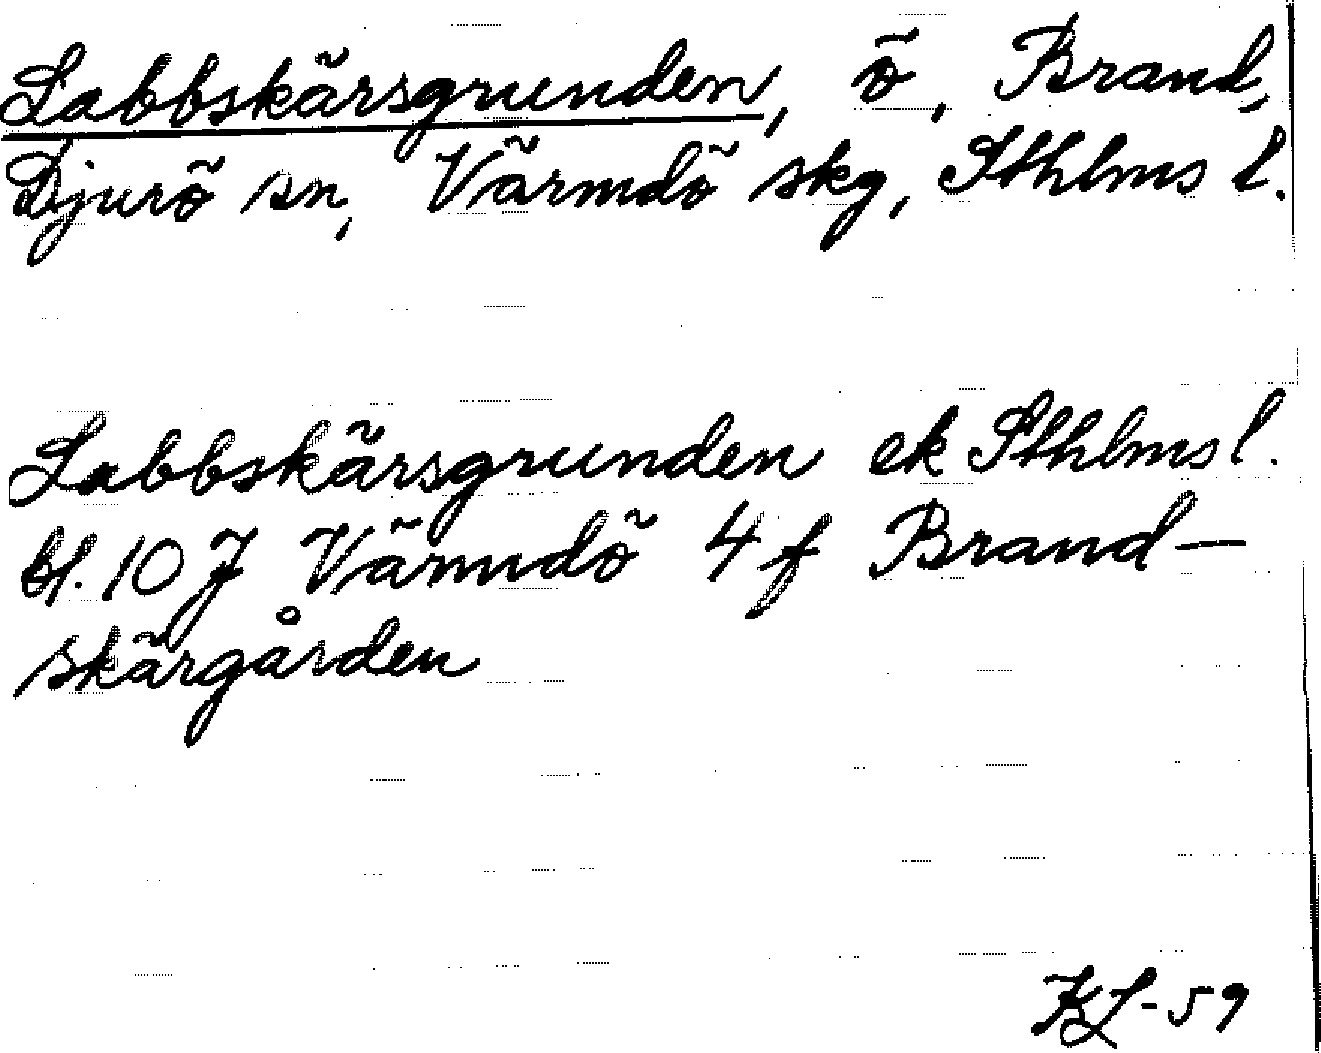 Labbskärsgrunden, ö, Brand,
Djurö sn, Värmdö skg, Sthlms l.
Labbskärsgrunden ek Sthlms l.
bl. 10 J Värmdö 4 f Brand-
skärgården
KL-59